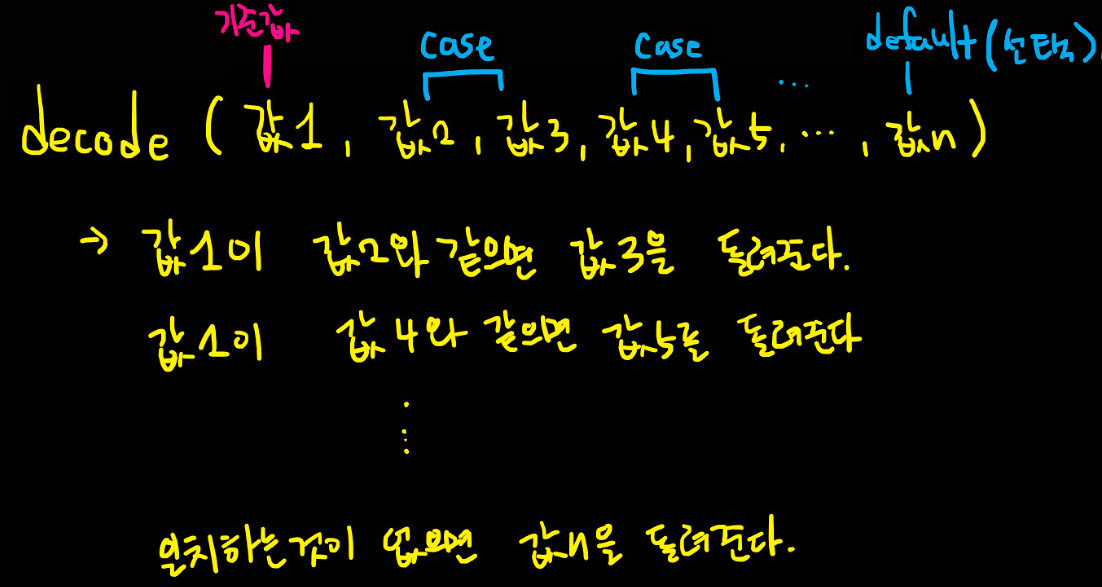 기준값
case case ... default(선택)
decode (값1, 값2, 값3, 값4, 값5, ..., 값n)
→ 값1이 값2와 같으면 값3을 돌려준다.
값1이 값4와 같으면 값5를 돌려준다
일치하는것이 없으면 값n을 돌려준다.